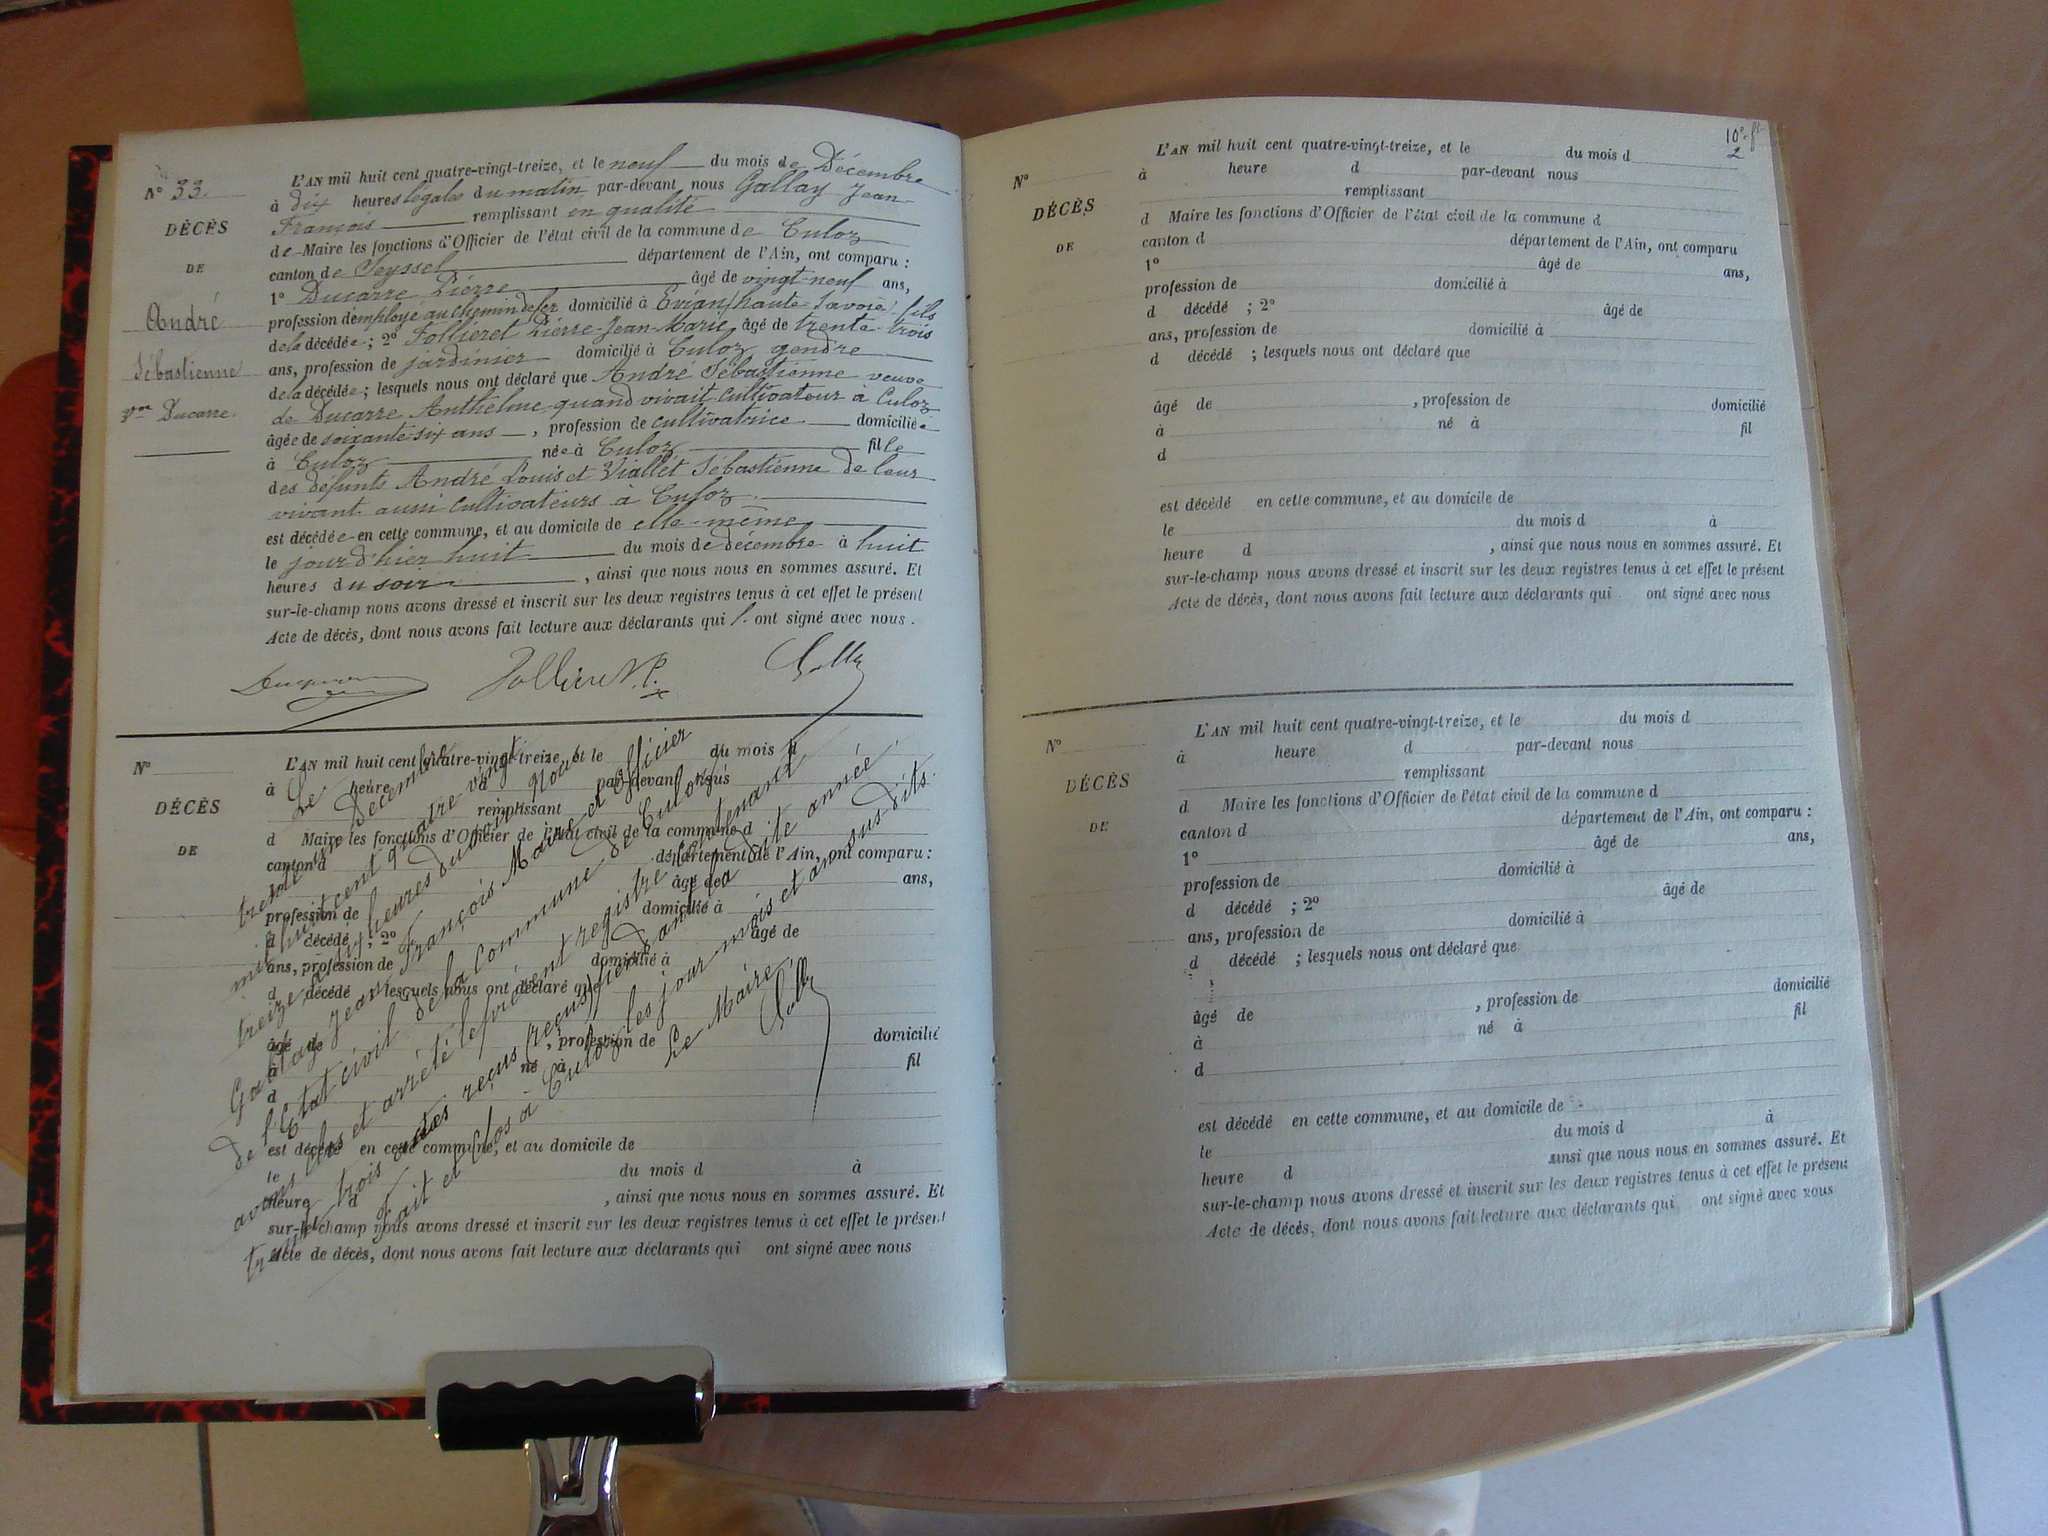 N° 33.
DÉCÈS
DE
André
Sébastienne
Vve Ducarre.
L'AN mil huit cent quatre-vingt-treize, et le neuf du mois de Décembre
à dix heures légales du matin par-devant nous Gallay Jean
François remplissant en qualité
de Maire les fonctions d'Officier de l'état civil de la commune de Culoz
canton de Seyssel département de l'Ain, ont comparu :
1° Ducarre Pierre âgé de vingt-neuf ans,
profession d'employé au chemin de fer domicilié à Evian (haute-Savoie) fils
de la décédée ; 2° Jollieret Pierre-Jean-Marie, âgé de trente-trois
ans, profession de jardinier domicilié à Culoz gendre
de la décédée ; lesquels nous ont déclaré que André Sébastienne veuve
de Ducarre Anthelme quand vivait cultivateur à Culoz
âgée de soixante-six ans, profession de cultivatrice domiciliée
à Culoz née à Culoz fille
des défunts André Louis et Viallet Sébastienne de leur
vivant aussi cultivateurs à Culoz.
est décédée en cette commune, et au domicile de elle-même
le jour d'hier huit du mois de décembre à huit
heures du soir, ainsi que nous nous en sommes assuré. Et
sur-le-champ nous avons dressé et inscrit sur les deux registres tenus à cet effet le présent
Acte de décès, dont nous avons fait lecture aux déclarants qui l'ont signé avec nous.
N°
DÉCÈS
DE
L'AN mil huit cent quatre-vingt-treize, et le du mois d
à heure d par-devant nous
remplissant
d Maire les fonctions d'Officier de l'état civil de la commune d
canton d département de l'Ain, ont comparu :
1° âgé de ans,
profession de domicilié à
d décédé ; 2° âgé de
ans, profession de domicilié à
d décédé ; lesquels nous ont déclaré que
âgé de , profession de domicilié
à né à fil
d
est décédé en cette commune, et au domicile de
le du mois d à
heure d , ainsi que nous nous en sommes assuré. Et
sur-le-champ nous avons dressé et inscrit sur les deux registres tenus à cet effet le présent
Acte de décès, dont nous avons fait lecture aux déclarants qui ont signé avec nous
Le
trente un Décembre
mil huit cent quatre vingt
treize, à six heures du soir, nous
Gallay Jean François Maire et officier
de l'Etat civil de la commune de Culoz
avons clos et arrêté le présent registre contenant
trente trois actes reçus (reçus) pendant la dite année.
Fait et clos à Culoz les jour mois et an sus-dits.
Le Maire,
10e ft
2
N°
DÉCÈS
DE
L'AN mil huit cent quatre-vingt-treize, et le du mois d
à heure d par-devant nous
remplissant
d Maire les fonctions d'Officier de l'état civil de la commune d
canton d département de l'Ain, ont comparu
1° âgé de ans,
profession de domicilié à
d décédé ; 2° âgé de
ans, profession de domicilié à
d décédé ; lesquels nous ont déclaré que
âgé de , profession de domicilié
à né à fil
d
est décédé en cette commune, et au domicile de
le du mois d à
heure d , ainsi que nous nous en sommes assuré. Et
sur-le-champ nous avons dressé et inscrit sur les deux registres tenus à cet effet le présent
Acte de décès, dont nous avons fait lecture aux déclarants qui ont signé avec nous
N°
DÉCÈS
DE
L'AN mil huit cent quatre-vingt-treize, et le du mois d
à heure d par-devant nous
remplissant
d Maire les fonctions d'Officier de l'état civil de la commune d
canton d département de l'Ain, ont comparu :
1° âgé de ans,
profession de domicilié à
d décédé ; 2° âgé de
ans, profession de domicilié à
d décédé ; lesquels nous ont déclaré que
âgé de , profession de domicilié
à né à fil
d
est décédé en cette commune, et au domicile de
le du mois d à
heure d ainsi que nous nous en sommes assuré. Et
sur-le-champ nous avons dressé et inscrit sur les deux registres tenus à cet effet le présent
Acte de décès, dont nous avons fait lecture aux déclarants qui ont signé avec nous